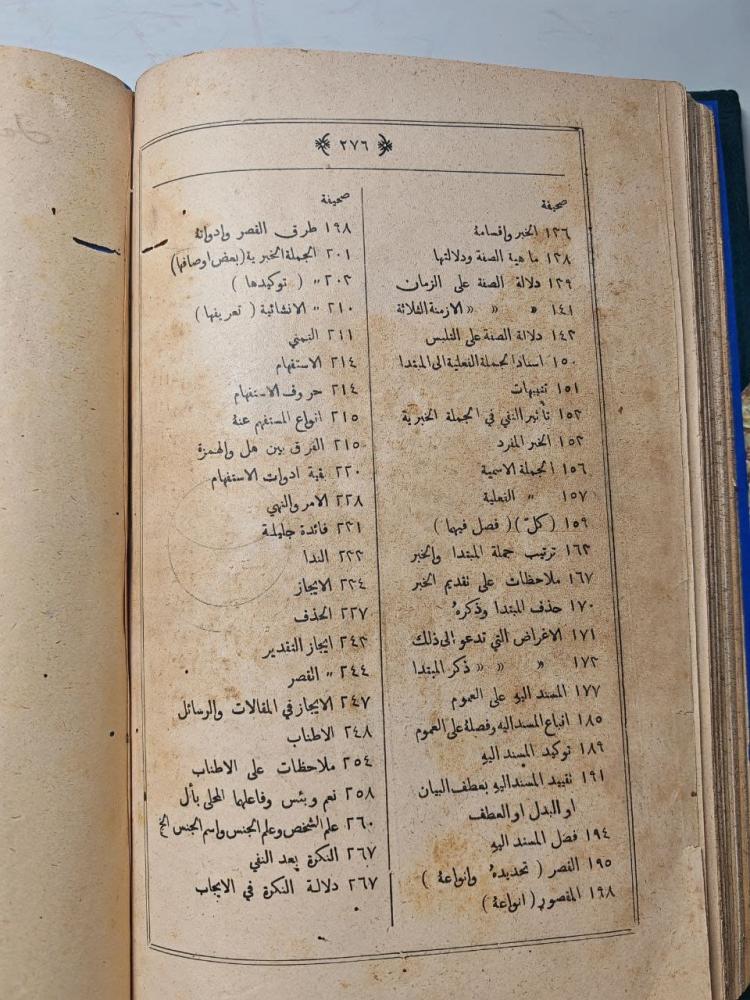 ٢٧٦
صحيفة
١٢٦ الخبر واقسامهُ
١٢٨ ما هية الصفة ودلالتها
١٢٩ دلالة الصفة على الزمان
١٤١ « « « الازمنة الثلاثة
١٤٢ دلالة الصفة على التلبس
١٥٠ اسناد الجملة الفعلية الى المبتدا
١٥١ تنبيهات
١٥٢ تأثير النفي في الجملة الخبرية
١٥٢ الخبر المفرد
١٥٦ الجملة الاسمية
١٥٧ " الفعلية
١٥٩ (كلّ) ( فصل فيها )
١٦٢ ترتيب جملة المبتدا والخبر
١٦٧ ملاحظات على تقديم الخبر
١٧٠ حذف المبتدا وذكرهُ
١٧١ الاغراض التي تدعو الى ذلك
١٧٢ « « « ذكر المبتدا
١٧٧ المسند اليهِ على العموم
١٨٥ اتباع المسند اليه وفصلهُ على العموم
١٨٩ توكيد المسند اليهِ
١٩١ تقييد المسند اليهِ بعطف البيان
او البدل او العطف
١٩٤ فصل المسند اليهِ
١٩٥ القصر ( تحديدهُ وانواعهُ )
١٦٨ المقصور ( انواعهُ )
صحيفة
١٩٨ طرق القصر وادواتهُ
٢٠١ الجملة الخبرية (بعض اوصافها)
٢٠٢ " ( توكيدها )
٢١٠ " الانشائية ( تعريفها )
٢١١ التمني
٢١٤ الاستفهام
٢١٤ حروف الاستفهام
٢١٥ انواع المستفهم عنهُ
٢١٥ الفرق بين هل والهمزة
٢٢٠ بقية ادوات الاستفهام
٢٢٨ الامر والنهي
٢٢١ فائدة جليلة
٢٢٢ الندا
٢٢٤ الايجاز
٢٢٧ الحذف
٢٤٢ ايجاز التقدير
٢٤٤ " القصر
٢٤٧ الايجاز في المقالات والرسائل
٢٤٨ الاطناب
٢٥٤ ملاحظات على الاطناب
٢٥٨ نعم وبئس وفاعلها المحلى بأل
٢٦٠ علم الشخص وعلم الجنس واسم الجنس الخ
٢٦٧ النكرة بعد النفي
٢٦٧ دلالة النكرة في الايجاب